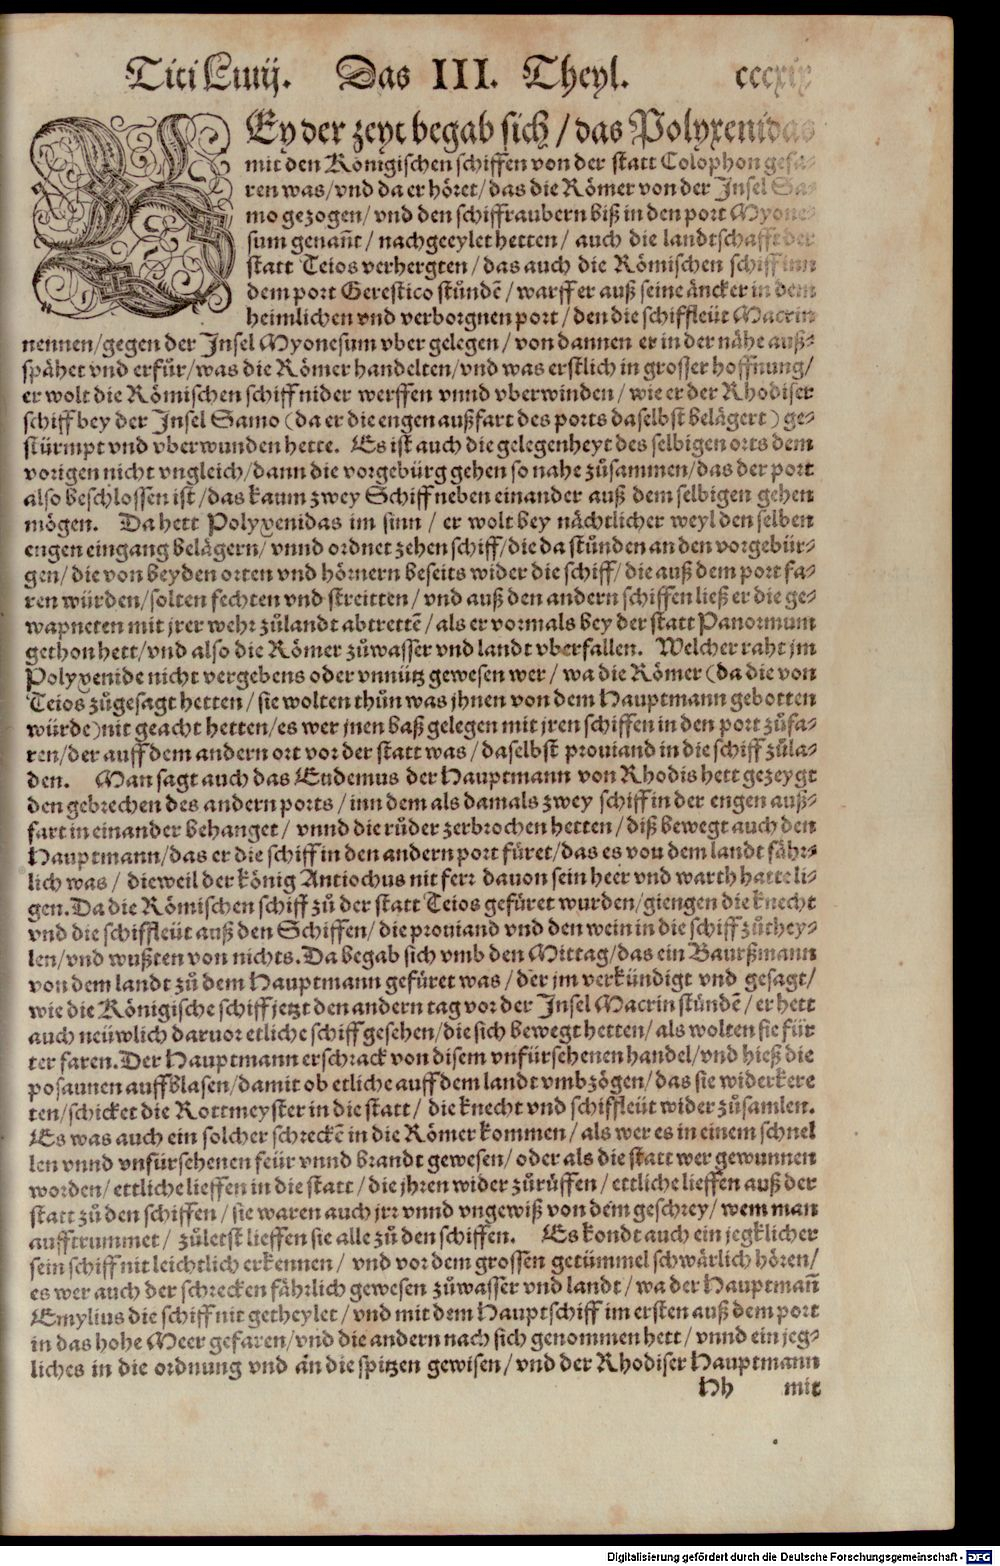 Titi Liuij. Das III. Theyl. cccxix
BEy der zeyt begab sich / das Polyxenidas
mit den Königischen schiffen von der statt Colophon gefa-
ren was / vnd da er höret / das die Römer von der Insel Sa-
mo gezogen / vnd den schiffraubern biß in den port Myone-
sum genañt / nachgeeylet hetten / auch die landtschafft der
statt Teios verhergten / das auch die Römischen schiff inn
dem port Gerestico stündẽ / warff er auß seine äncker in dem
heimlichen vnd verborgnen port / den die schiffleüt Macrin
nennen / gegen der Insel Myonesum vber gelegen / von dannen er in der nähe auß-
spähet vnd erfůr / was die Römer handelten / vnd was erstlich in grosser hoffnung /
er wolt die Römischen schiff nider werffen vnnd vberwinden / wie er der Rhodiser
schiff bey der Insel Samo (da er die engen außfart des ports daselbst belägert) ge-
stürmpt vnd vberwunden hette. Es ist auch die gelegenheyt des selbigen orts dem
vorigen nicht vngleich / dann die vorgebürg gehen so nahe zůsammen / das der port
also beschlossen ist / das kaum zwey Schiff neben einander auß dem selbigen gehen
mögen. Da hett Polyxenidas im sinn / er wolt bey nächtlicher weyl den selben
engen eingang belägern / vnnd ordnet zehen schiff / die da stůnden an den vorgebür-
gen / die von beyden orten vnd hörnern beseits wider die schiff / die auß dem port fa-
ren würden / solten fechten vnd streitten / vnd auß den andern schiffen ließ er die ge-
wapneten mit jrer wehr zůlandt abtrettẽ / als er vormals bey der statt Panormum
gethon hett / vnd also die Römer zůwasser vnd landt vberfallen. Welcher raht jm
Polyxenide nicht vergebens oder vnnütz gewesen wer / wa die Römer (da die von
Teios zůgesagt hetten / sie wolten thůn was jhnen von dem Hauptmann gebotten
würde) nit geacht hetten / es wer jnen baß gelegen mit jren schiffen in den port zůfa-
ren / der auff dem andern ort vor der statt was / daselbst prouiand in die schiff zůla-
den. Man sagt auch das Eudemus der Hauptmann von Rhodis hett gezeygt
den gebrechen des andern ports / inn dem als damals zwey schiff in der engen auß-
fart in einander behanget / vnnd die růder zerbrochen hetten / diß bewegt auch den
Hauptmann / das er die schiff in den andern port füret / das es von dem landt fähr-
lich was / dieweil der könig Antiochus nit ferr dauon sein heer vnd warth hatte li-
gen. Da die Römischen schiff zů der statt Teios gefüret wurden / giengen die knecht
vnd die schiffleüt auß den Schiffen / die prouiand vnd den wein in die schiff zůthey-
len / vnd wußten von nichts. Da begab sich vmb den Mittag / das ein Baurßmann
von dem landt zů dem Hauptmann gefüret was / der jm verkündigt vnd gesagt /
wie die Königische schiff jetzt den andern tag vor der Insel Macrin stündẽ / er hett
auch neüwlich daruor etliche schiff gesehen / die sich bewegt hetten / als wolten sie für
ter faren. Der Hauptmann erschrack von disem vnfürsehenen handel / vnd hieß die
posaunen auffblasen / damit ob etliche auff dem landt vmbzögen / das sie widerkere
ten / schicket die Rottmeyster in die statt / die knecht vnd schiffleüt wider zůsamlen.
Es was auch ein solcher schreckẽ in die Römer kommen / als wer es in einem schnel
len vnnd vnfürsehenen feür vnnd brandt gewesen / oder als die statt wer gewunnen
worden / ettliche lieffen in die statt / die jhren wider zůrüffen / ettliche lieffen auß der
statt zů den schiffen / sie waren auch jrr vnnd vngewiß von dem geschrey / wem man
aufftrummet / zůletst lieffen sie alle zů den schiffen. Es kondt auch ein jegklicher
sein schiff nit leichtlich erkennen / vnd vor dem grossen getümmel schwärlich hören /
es wer auch der schrecken fährlich gewesen zůwasser vnd landt / wa der Hauptmañ
Emylius die schiff nit getheylet / vnd mit dem Hauptschiff im ersten auß dem port
in das hohe Meer gefaren / vnd die andern nach sich genommen hett / vnnd ein jeg-
liches in die ordnung vnd an die spitzen gewisen / vnd der Rhodiser Hauptmann
Hh mit
Digitalisierung gefördert durch die Deutsche Forschungsgemeinschaft - DFG